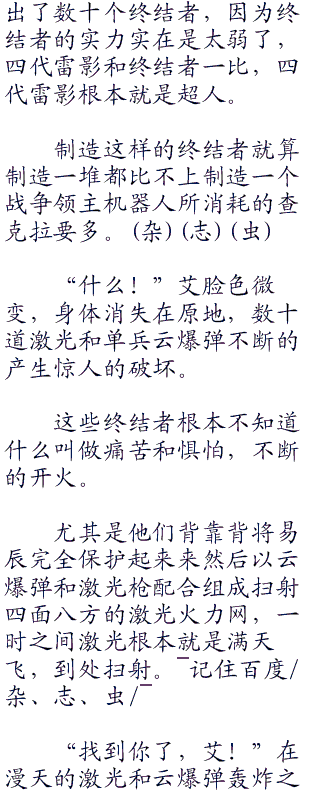 出了数十个终结者，因为终
结者的实力实在是太弱了，
四代雷影和终结者一比，四
代雷影根本就是超人。
制造这样的终结者就算
制造一堆都比不上制造一个
战争领主机器人所消耗的查
克拉要多。(杂)(志)(虫)
“什么！”艾脸色微
变，身体消失在原地，数十
道激光和单兵云爆弹不断的
产生惊人的破坏。
这些终结者根本不知道
什么叫做痛苦和惧怕，不断
的开火。
尤其是他们背靠背将易
辰完全保护起来来然后以云
爆弹和激光枪配合组成扫射
四面八方的激光火力网，一
时之间激光根本就是满天
飞，到处扫射。¯记住百度/
杂、志、虫/¯
“找到你了，艾！”在
漫天的激光和云爆弹轰炸之